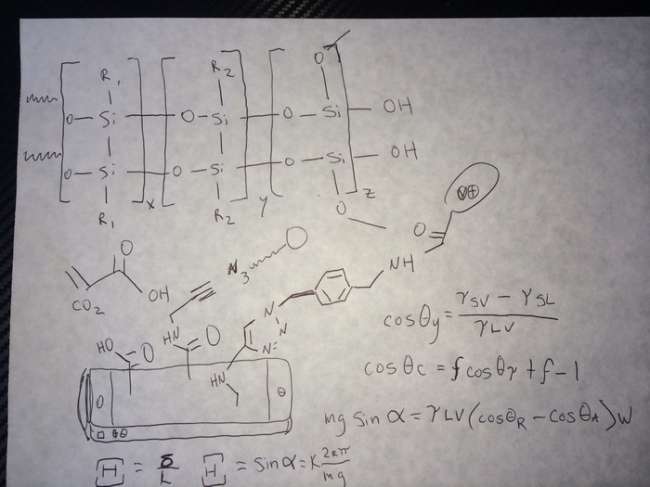 R1 R2 O
O – Si O – Si O – Si – OH
O – Si O – Si O – Si – OH
R1 x R2 y O z
O
OH
CO2
N3
O
NH
V⊕
HN
HO O O
N
N
N=
HN
cosθy = γSV – γSL / γLV
cosθc = f cosθγ + f – 1
mg sin α = γLV (cosθR – cosθA) W
[H] = δ/L [H] = sinα = K 2απ/mg